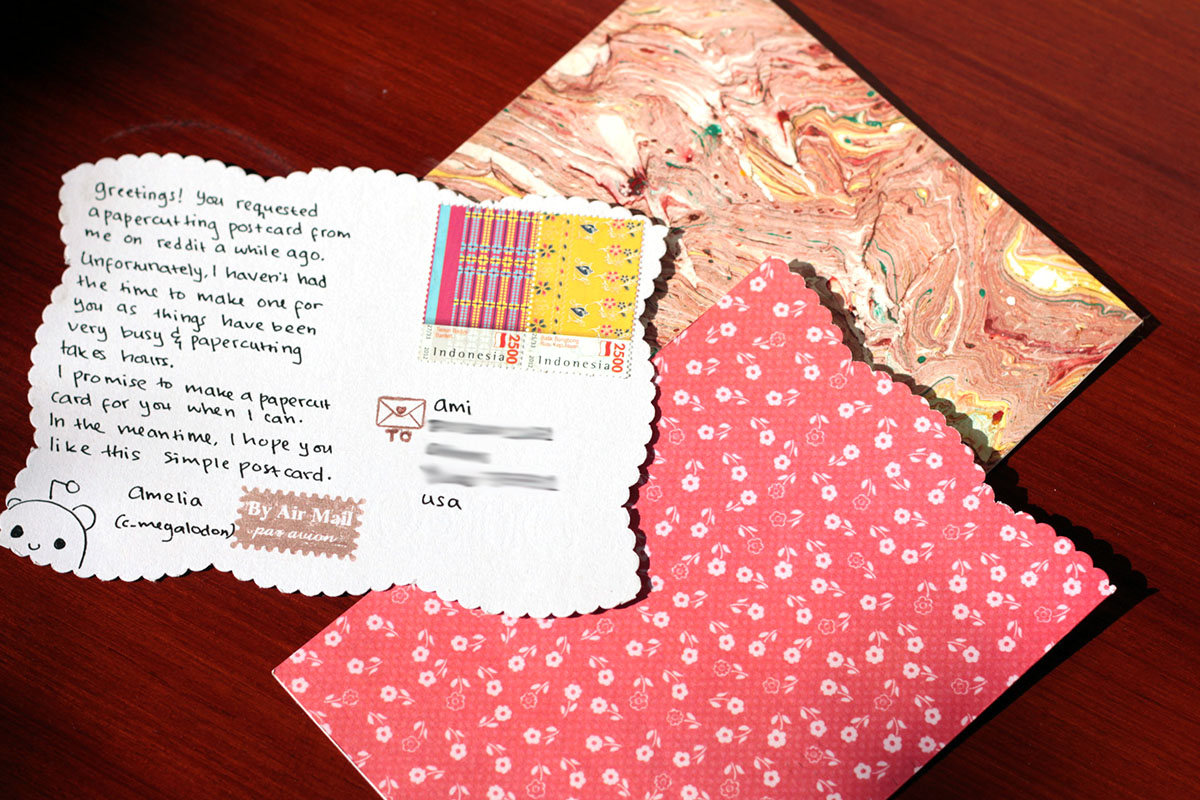 greetings! You requested
a papercutting postcard from
me on reddit a while ago.
Unfortunately, I haven't had
the time to make one for
you as things have been
very busy & papercutting
takes hours.
I promise to make a papercut
card for you when I can.
In the meantime, I hope you
like this simple postcard.
amelia
(c_megalodon)
By Air Mail
par avion
2500
Indonesia
2012
2500
Indonesia
2012
TO
ami
usa